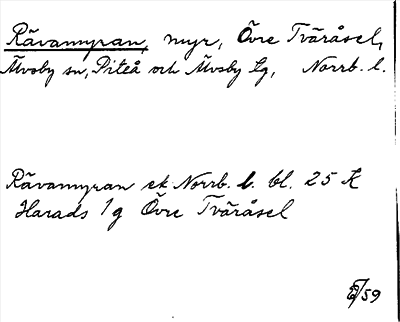 Rävamyran, myr, Övre Tväråsel,
Älvsby sn, Piteå och Älvsby tg, Norrb. l.
Rävamyran ek Norrb. l. bl. 25 K
Harads 1g Övre Tväråsel
E/59